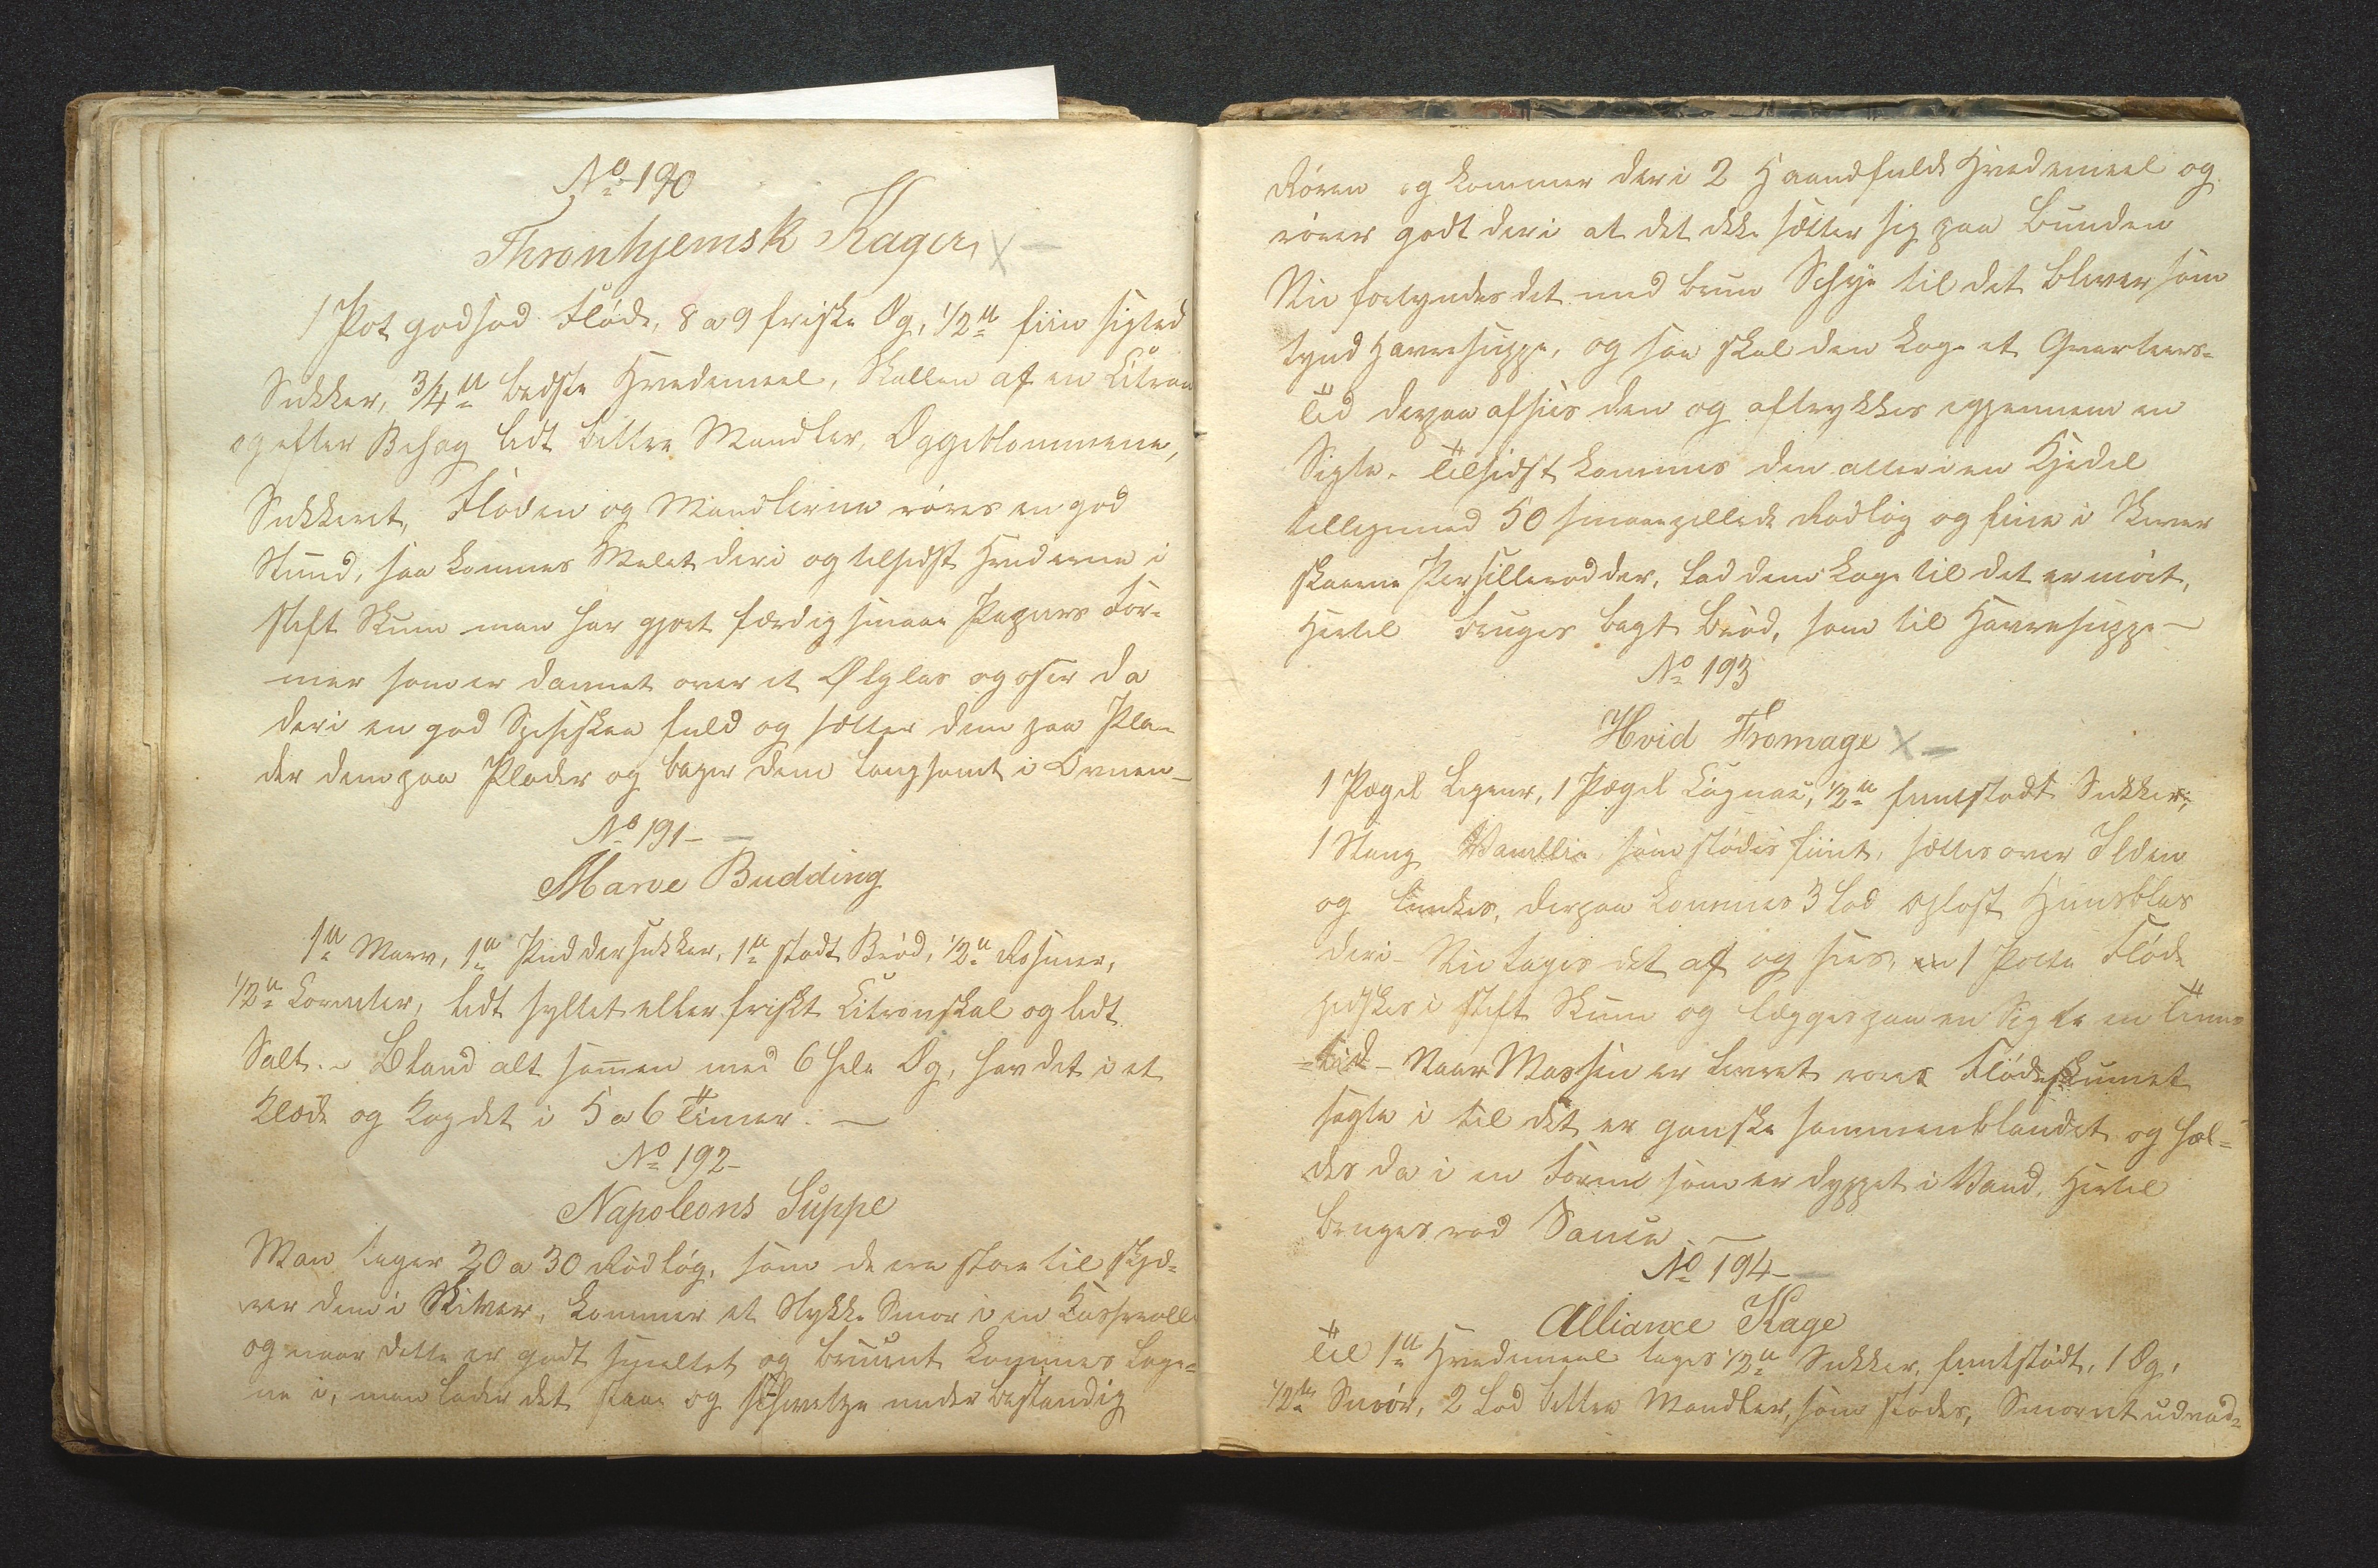 No 190
Thronhjemsk Kager
1 Pot godsød Fløde, 8 a 9 friske Æg, 1/2 ℔ fiin sigted
Sukker, 3/4 ℔ bedste Hvedemeel, Skallen af en Citron
og efter Behag lidt bittre Mandler, Æggeblommene,
Sukkeret, Fløden og Mandlerne røres en god
Stund, saa kommes Melet deri og tilsidst Hviderne i
stift Skum man har gjort færdig smaae Papiers For-
mer som er dannet over et Ølglas og øser da
deri en god Spiseskee fuld og sætter dem paa Pla-
der dem paa Plader og bager dem langsomt i Ovnen -
No 191 -
Marve Budding
1 ℔ Marv, 1 ℔ Puddersukker, 1 ℔ stødt Brød, 1/2 ℔ Rosiner,
1/2 ℔ Corender, lidt syltet eller friskt Citronskal og lidt
Salt. - Bland alt sammen med 6 hele Æg, hav det i et
Klæde og kog det i 5 a 6 Timer. -
No 192 -
Napoleons Suppe
Man tager 20 a 30 Rødløg, som de ere store til skjæ-
rer dem i Skiver, kommer et Stykke Smør i en Casserolle
og naar dette er godt smeltet og bruunt kommes Løge-
ne i, man lader det staae og schwitze under bestandig
Røren og kommer deri 2 Haandfulde Hvedemeel og
rører godt deri at det ikke sætter sig paa Bunden
Nu fortyndes det med bruun Schye til det bliver som
tynd Havresuppe, og saa skal den koge et Qvarteers-
Tid derpaa afsies den og aftrykkes igjennem en
Sigte. Tilsidst kommes den atter i en Kjedel
tilligemed 50 smaae pillede Rødløg og fine i Skiver
skaarne Persillerødder, lad dem koge til det er mørt,
Hertil bruges bagt Brød, som til Havresuppe -
No 193
Hvid Fromage
1 Pægel Liqeur, 1 Pægel Cognac, 1/2 ℔ fiintstødt Sukker,
1 Stang Vanillie som stødes fiint, sættes over Ilden
og lunkes, derpaa kommes 3 Lod opløst Huusblas
deri - Nu tages det af og sies, 1 Potte Fløde
pidskes i stift Skum og lægges paa en Sigte en Times
-tid - Naar Massen er levret røres Flødeskummet
sagte i til det er ganske sammenblandet og hæl-
des da i en Form som er dyppet i Vand. Hertil
bruges rød Sauce
No 194 -
Alliance Kage
Til 1 ℔ Hvedemeel tages 1/2 ℔ Sukker, fiintstødt, 1 Æg,
1/2 ℔ Smør, 2 Lod bittre Mandler, som stødes, Smørret udvad-